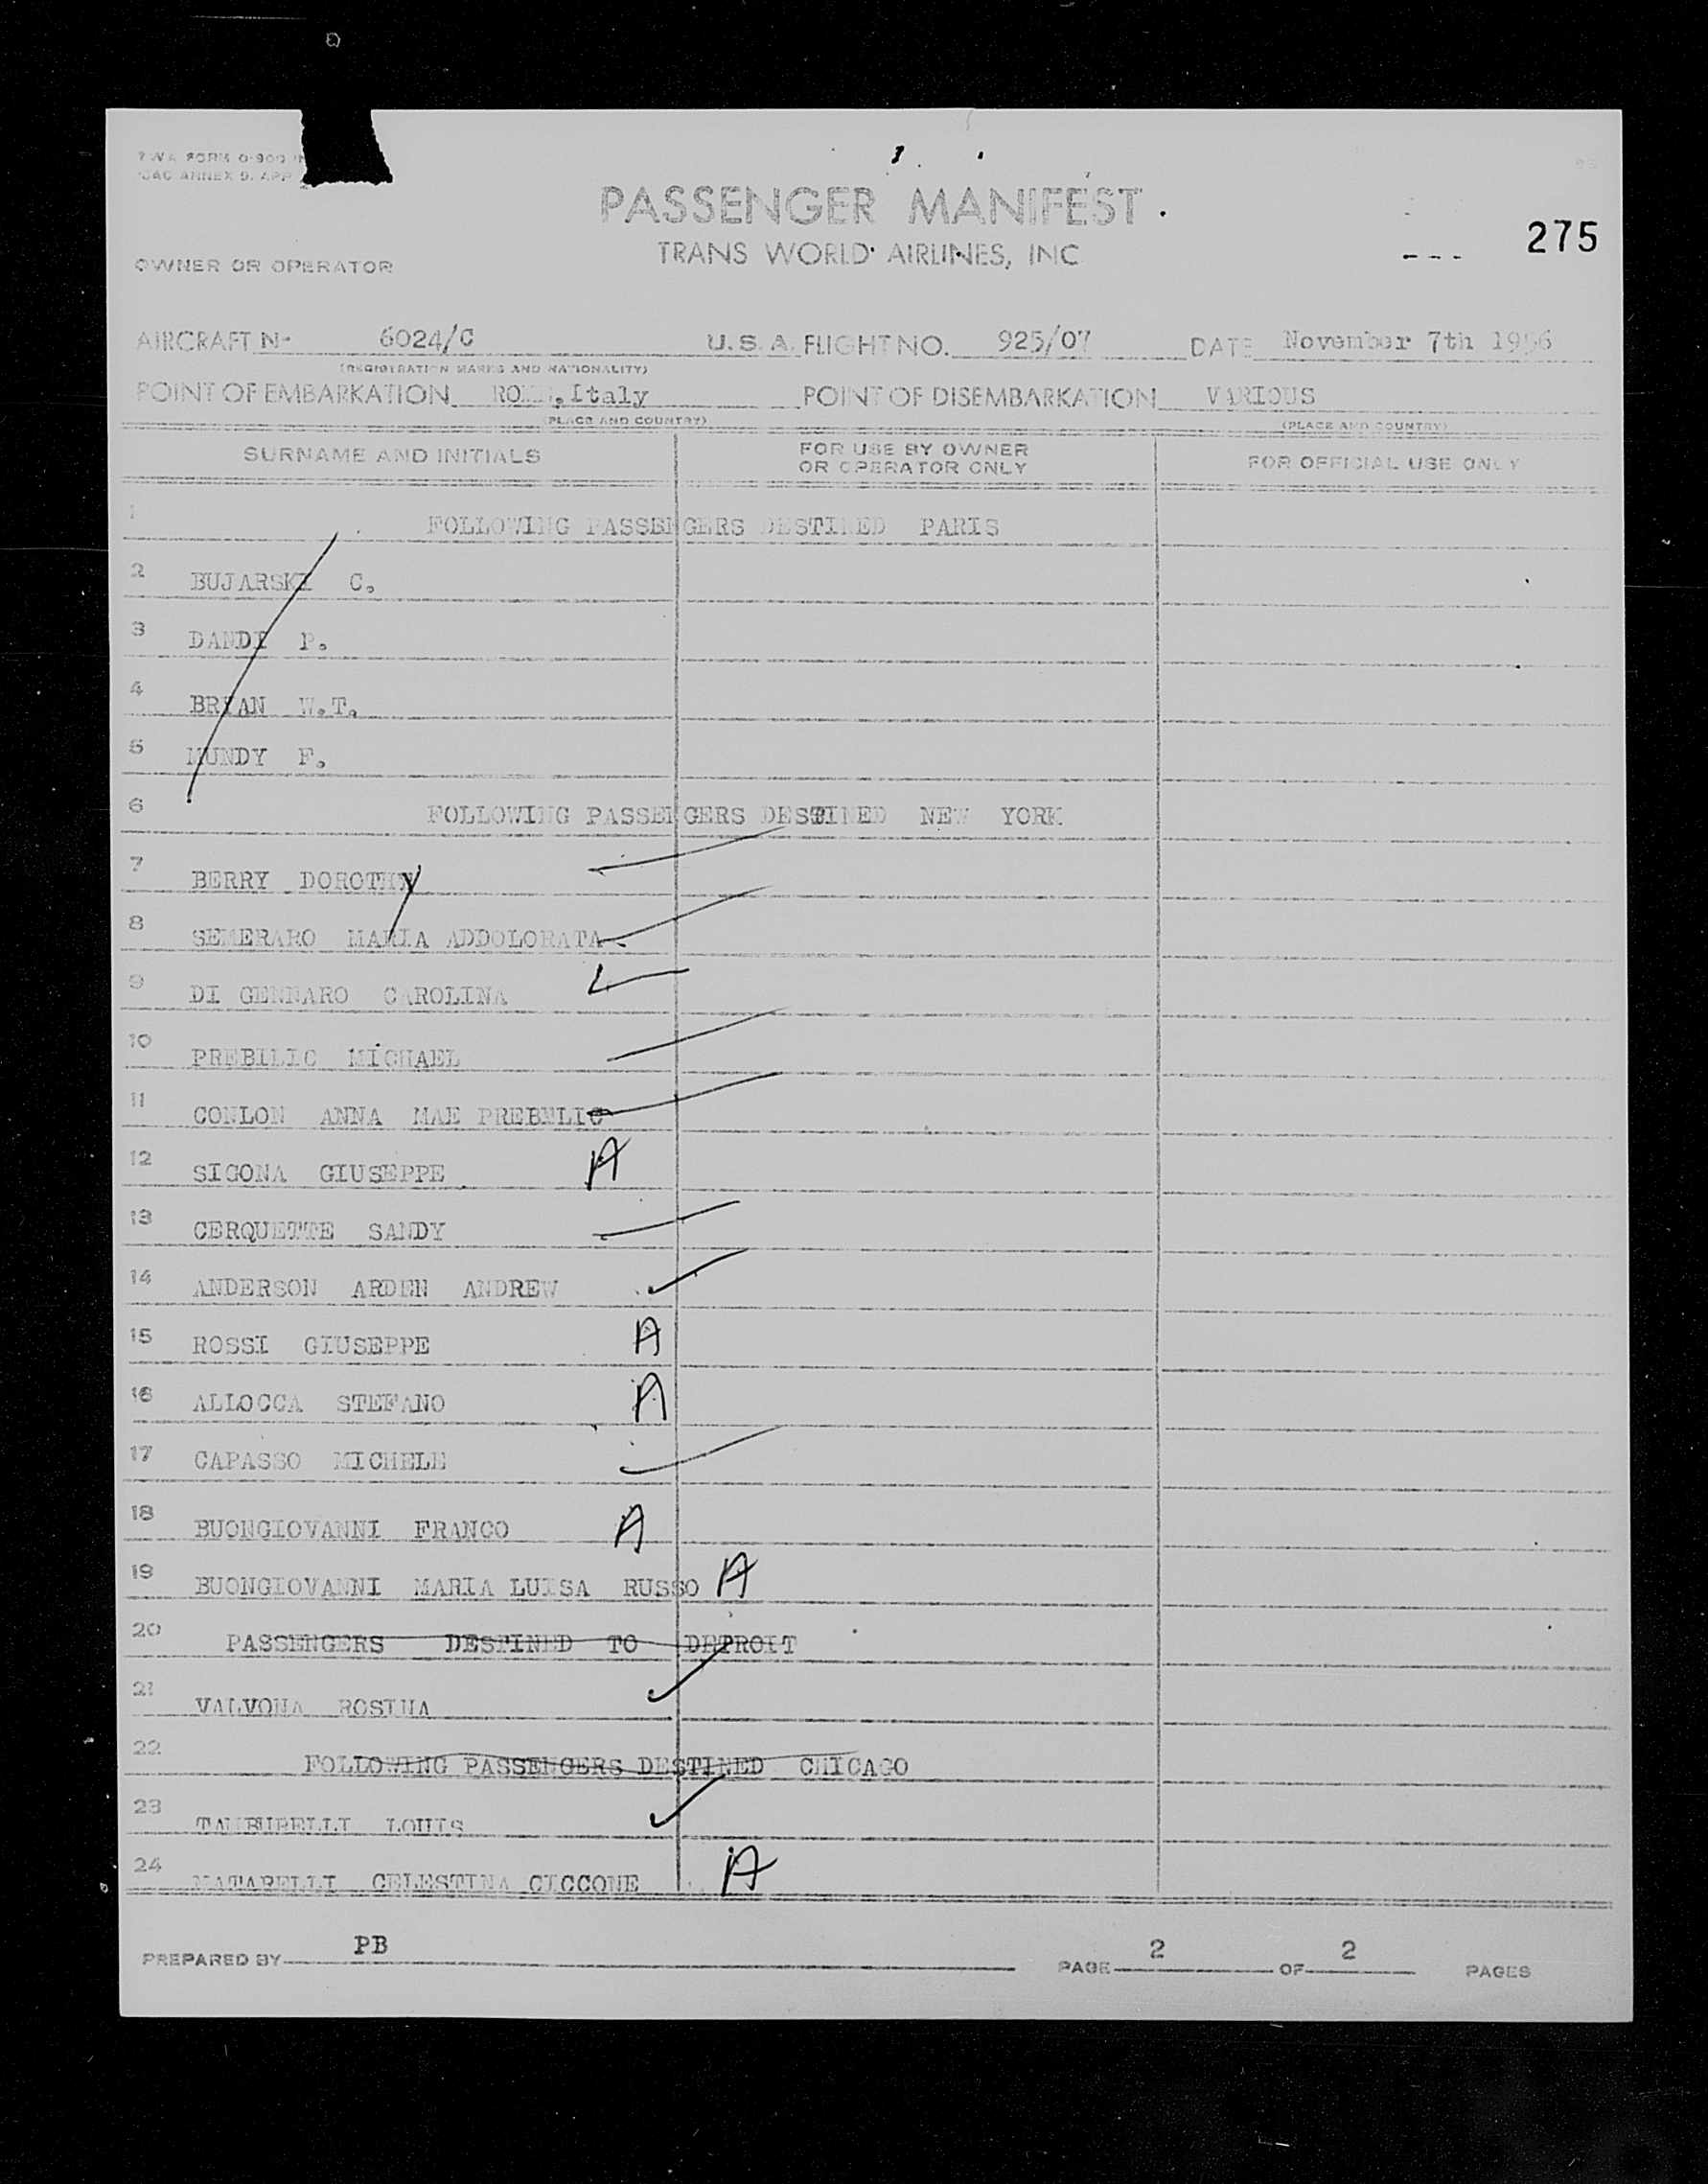 TWA FORM O-900 IN
ICAO ANNEX 9. APP
PASSENGER MANIFEST
TRANS WORLD AIRLINES, INC
275
OWNER OR OPERATOR
AIRCRAFT N- 6024/C U.S.A. FLIGHT NO. 925/07 DATE November 7th 1956
(REGISTRATION MARKS AND NATIONALITY)
POINT OF EMBARKATION ROME, Italy POINT OF DISEMBARKATION VARIOUS
(PLACE AND COUNTRY) (PLACE AND COUNTRY)
SURNAME AND INITIALS FOR USE BY OWNER OR OPERATOR ONLY FOR OFFICIAL USE ONLY
1 FOLLOWING PASSENGERS DESTINED PARIS
2 BUJARSKI C.
3 DANDI P.
4 BRYAN W.T.
5 MUNDY F.
6 FOLLOWING PASSENGERS DESTINED NEW YORK
7 BERRY DOROTHY
8 SEMERARO MARIA ADDOLORATA
9 DI GENNARO CAROLINA
10 PREBILIC MICHAEL
11 CONLON ANNA MAE PREBELIC
12 SIGONA GIUSEPPE A
13 CERQUETTE SANDY
14 ANDERSON ARDEN ANDREW
15 ROSSI GIUSEPPE A
16 ALLOCCA STEFANO A
17 CAPASSO MICHELE
18 BUONGIOVANNI FRANCO A
19 BUONGIOVANNI MARIA LUISA RUSSO A
20 PASSENGERS DESTINED TO DETROIT
21 VALVONA ROSINA
22 FOLLOWING PASSENGERS DESTINED CHICAGO
23 TAMBURELLI LOUIS
24 MATARELLI CELESTINA CICCONE A
PREPARED BY PB PAGE 2 OF 2 PAGES